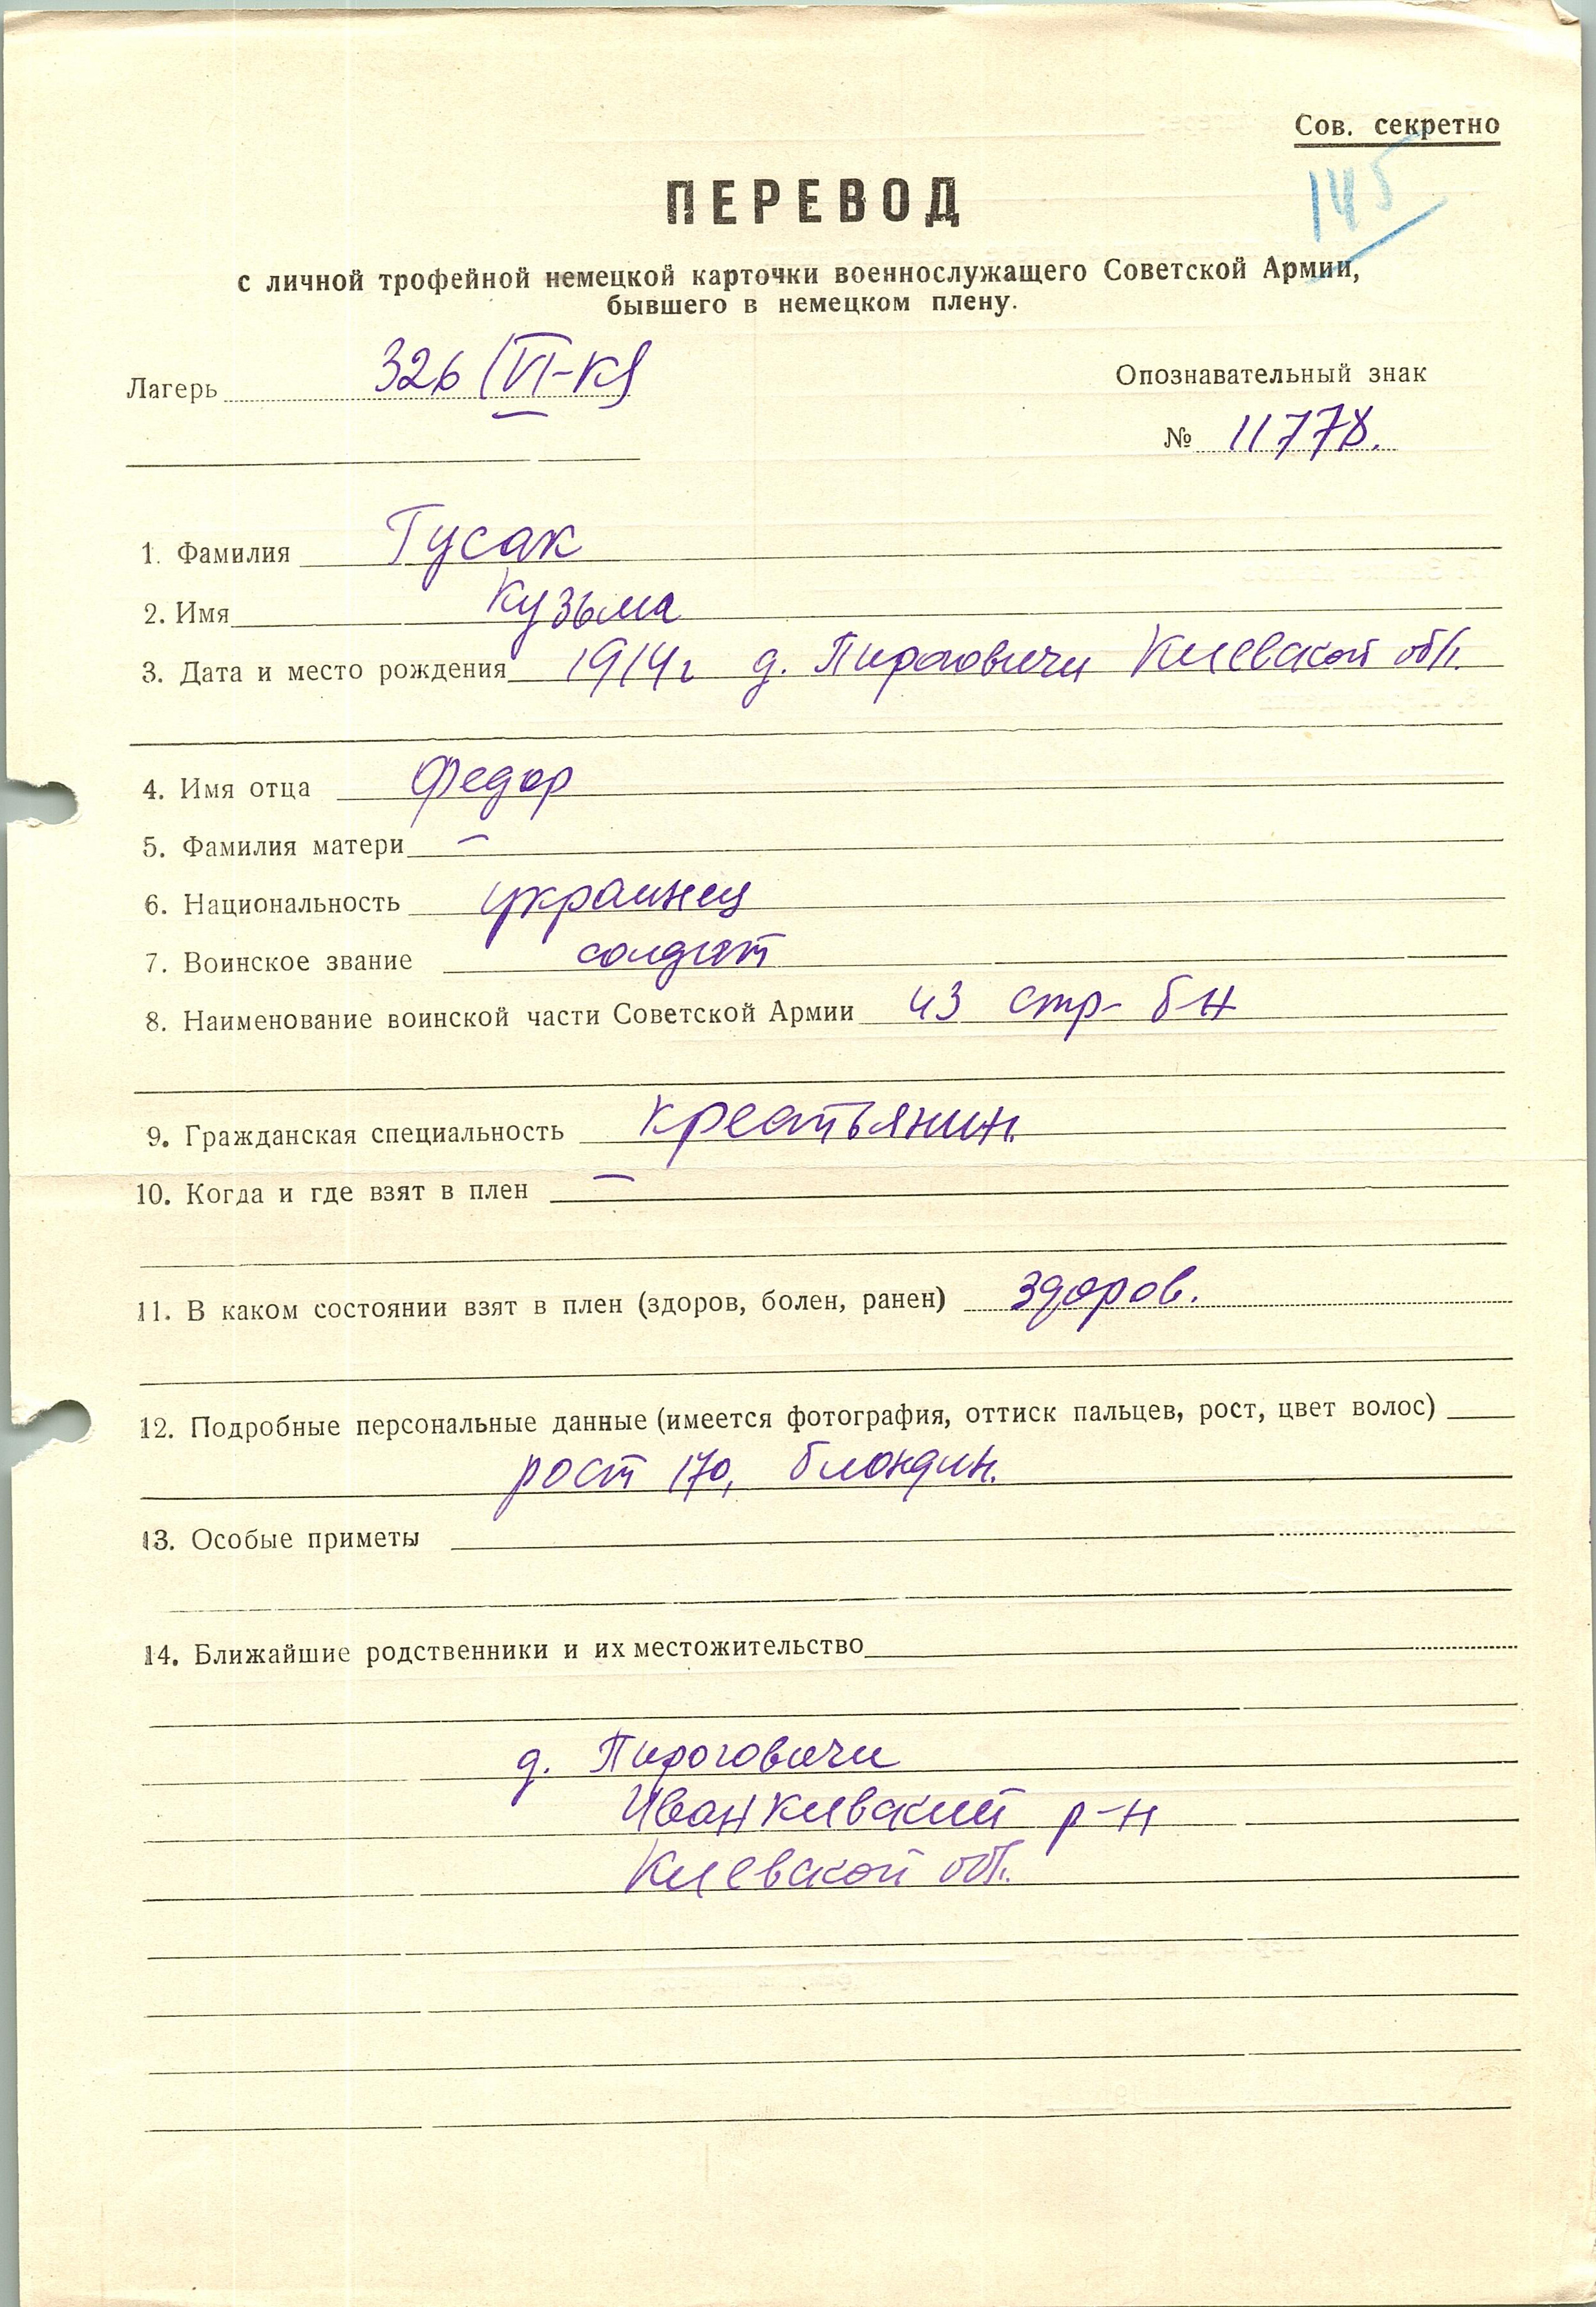 Сов. секретно
145
ПЕРЕВОД
с личной трофейной немецкой карточки военнослужащего Советской Армии,
бывшего в немецком плену.
Лагерь 326 (VI-К)
Опознавательный знак
№ 11778.
1. Фамилия Гусак
2. Имя Кузьма
3. Дата и место рождения 1914г д. Пироговичи Киевской обл.
4. Имя отца Федор
5. Фамилия матери –
6. Национальность украинец
7. Воинское звание солдат
8. Наименование воинской части Советской Армии 43 стр- б-н
9. Гражданская специальность крестьянин.
10. Когда и где взят в плен –
11. В каком состоянии взят в плен (здоров, болен, ранен) здоров.
12. Подробные персональные данные (имеется фотография, оттиск пальцев, рост, цвет волос)
рост 170, блондин.
13. Особые приметы
14. Ближайшие родственники и их местожительство
д. Пироговичи
Иванкивский р-н
Киевской обл.